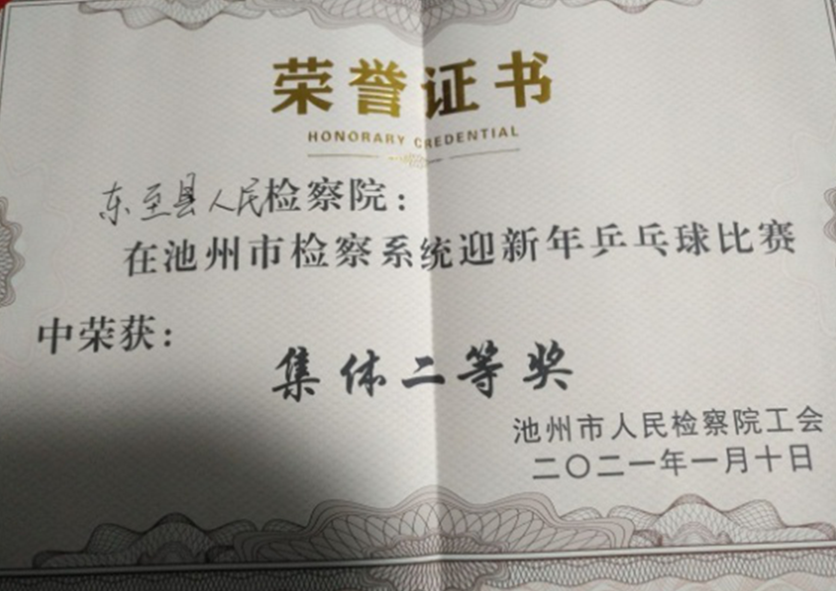 荣誉证书
HONORARY CREDENTIAL
东至县人民检察院：
在池州市检察系统迎新年乒乓球比赛
中荣获：
集体二等奖
池州市人民检察院工会
二〇二一年一月十日